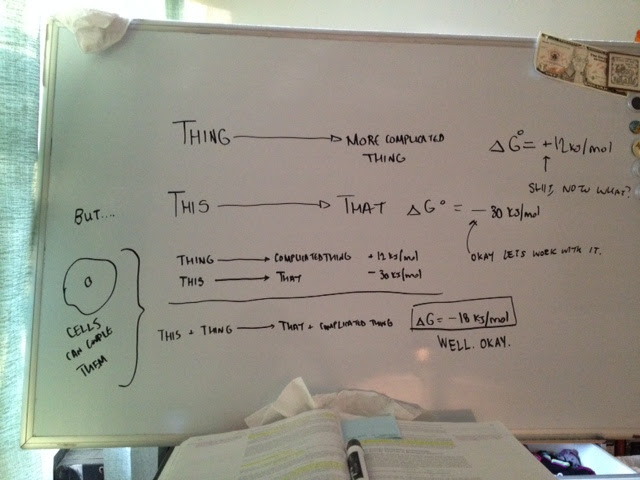 THING → MORE COMPLICATED
THING
ΔG° = +12 KJ/mol
SHIT, NOW WHAT?
THIS → THAT ΔG° = -30 KJ/mol
OKAY LETS WORK WITH IT.
BUT....
CELLS
CAN COUPLE
THEM
THING → COMPLICATED THING +12 KJ/mol
THIS → THAT -30 KJ/mol
THIS + THING → THAT + COMPLICATED THING ΔG = -18 KJ/mol
WELL. OKAY.